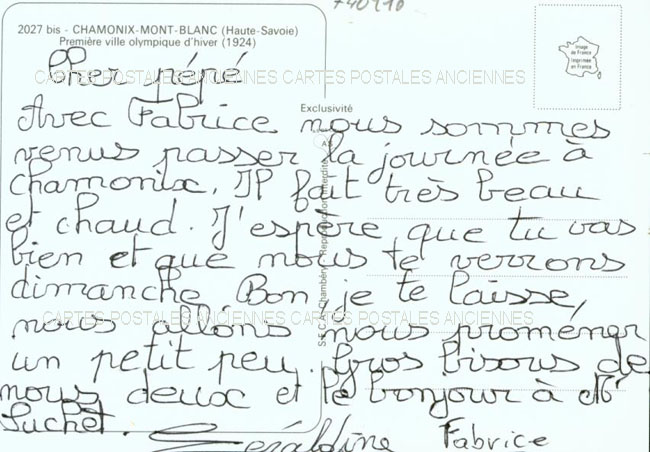 740910
2027 bis - CHAMONIX-MONT-BLANC (Haute-Savoie)
Première ville olympique d'hiver (1924)
Image de France
Imprimée en France
CARTES POSTALES ANCIENNES CARTES POSTALES ANCIENNES
Exclusivité
S.E.C.A. Chambéry - Reproduction interdite
Cher pépé
Avec Fabrice nous sommes
venus passer la journée à
chamonix. Il fait très beau
et chaud. J'espère que tu vas
bien et que nous te verrons
dimanche. Bon, je te laisse,
nous allons nous promener
un petit peu. Gros bisous de
nous deux et le bonjour à Mr
Suchet.
Géraldine Fabrice
CARTES POSTALES ANCIENNES CARTES POSTALES ANCIENNES